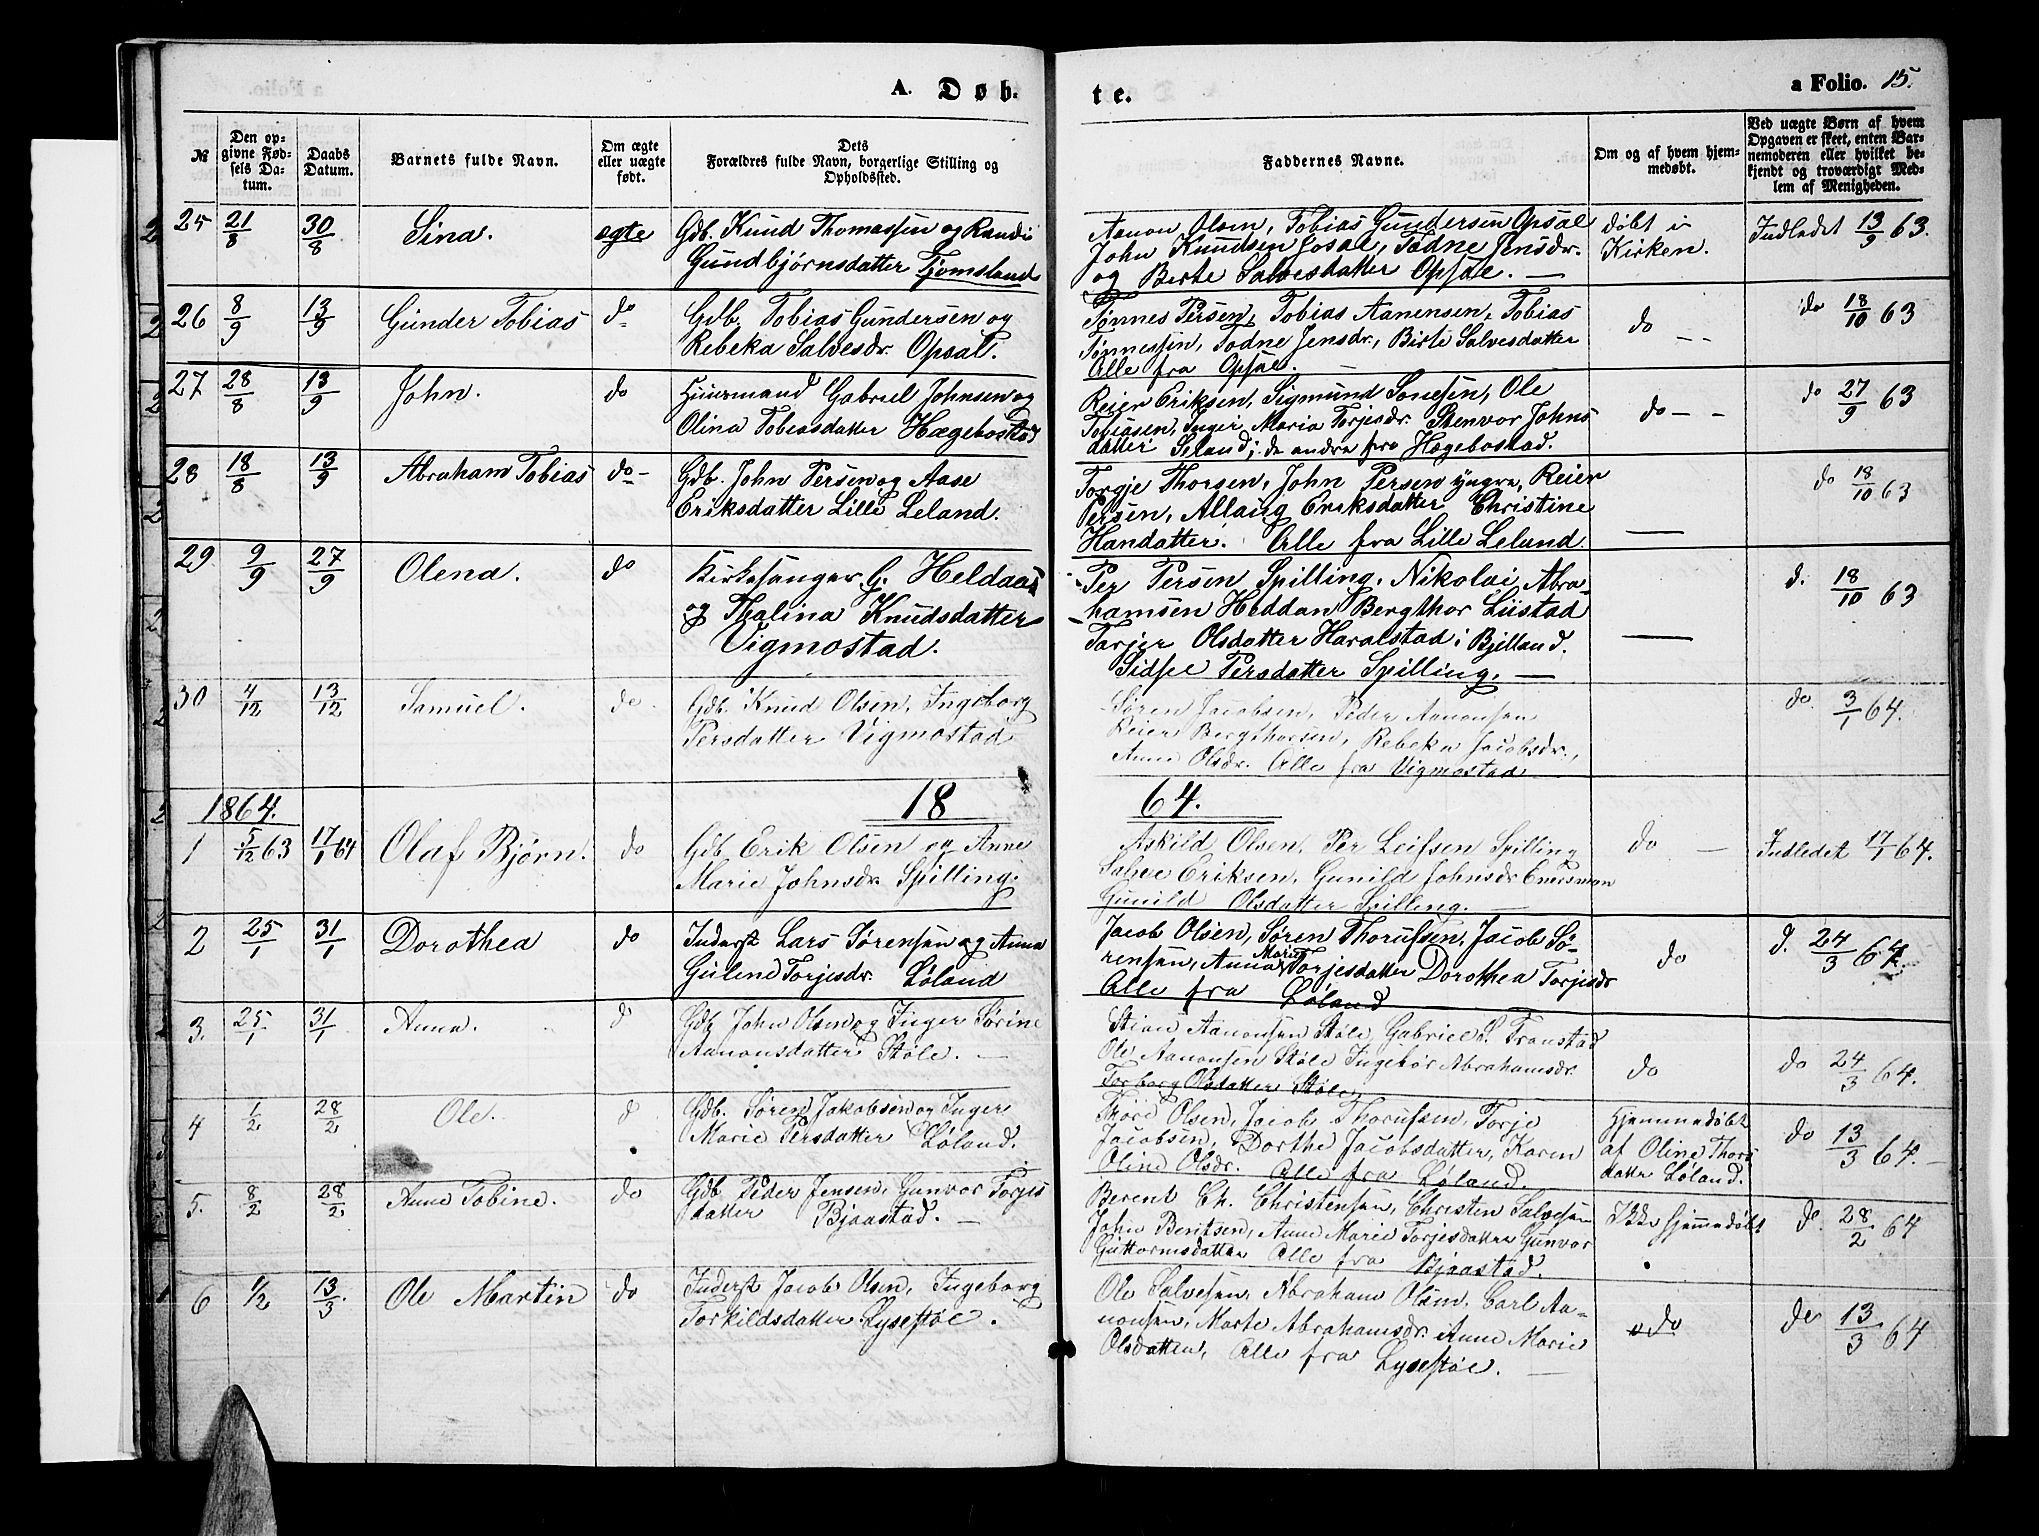 A. Døb-
te.
a Folio. 15.
№
Den op-
givne Fød-
sels Da-
tum.
Daabs
Datum.
Barnets fulde Navn.
Om ægte
eller uægte
født.
Dets
Forældres fulde Navn, borgerlige Stilling og
Opholdssted.
Faddernes Navne.
Om og af hvem hjem-
medøbt.
Ved uægte Børn af hvem
Opgaven er skeet, enten Bar-
nemoderen eller hvilket be-
kjendt og troværdigt Med-
lem af Menigheden.
25 21/8 30/8 Sina. ægte Gdb. Knud Thomassen og Randi
Gundbjørnsdatter Tjomsland
Aanon Olsen, Tobias Gundersen Opsal
John Knudsen Josal, Todne Jensdr.
og Birte Salvesdatter Opsal. —
døbt i
Kirken.
Indledet 13/9 63.
26 8/9 13/9 Gunder Tobias do Gdb. Tobias Gundersen og
Rebeka Salvesdr. Opsal.
Tønnes Persen, Tobias Aanensen, Tobias
Tønnessen, Todne Jensdr., Birte Salvesdatter
Alle fra Opsal. —
do
do 18/10 63
27 28/8 13/9 John. do Huusmand Gabriel Johnsen og
Olina Tobiasdatter Hægebostad
Reier Eriksen, Sigmund Sonesen, Ole
Tobiasen, Inger Maria Torjesdr. Stenvor Johns
datter Leland; de andre fra Hægebostad.
do - -
do 27/9 63
28 18/8 13/9 Abraham Tobias do- Gdb. John Persen og Aase
Eriksdatter Lille Leland.
Torgje Thorsen, John Persen yngre, Reier
Persen, Allaug Eriksdatter Christine
Handatter. Alle fra Lille Leland.
do 18/10 63
29 9/9 27/9 Olena. do Kirkesanger G. Heldaas
og Thalina Knudsdatter
Vigmostad.
Per Persen Spilling, Nikolai Abra-
hamsen Heddan Bergthor Liistad
Torjer Olsdatter Haralstad i Bjelland.
Sidsel Persdatter Spilling. —
d. 18/10 63
30 4/12 13/12 Samuel. do Gdb. Knud Olsen, Ingeborg
Persdatter Vigmostad
Søren Jacobsen, Peder Aanonsen
Reier Bergthorsen, Rebeka Jacobsdr.,
Anne Olsdr. Alle fra Vigmostad
do 3/1 64.
1864. 18 64.
1 5/12 63 17/1 64 Olaf Bjørn. do Gdb. Erik Olsen og Anne
Marie Johnsdr. Spilling.
Askild Olsen, Per Leifsen Spilling
Salve Eriksen, Gunild Johnsdr
Gunild Olsdatter Spilling. —
do —
Indledet 17/1 64.
2 25/1 31/1 Dorothea do Inderst Lars Sørensen og Anna
Gurine Torjesdr. Løland
Jacob Olsen, Søren Thorufsen, Jacob Sø-
rensen, Anna Marie Torjesdatter Dorothea Torjesdr
Alle fra Løland
do
d. 24/3 64
3. 25/1 31/1 Anna. d Gdb John Olsen og Inger Sørine
Aanonsdatter Støle. —
Stian Aanonsen Støle Gabriel S. Tronstad
Ole Aanonsen Støle Ingebor Abrahamsdr.
Torborg Olsdatter Støle
do
do 24/3 64.
4 1/2 28/2 Ole. d Gdb. Søren Jakobsen og Inger
Marie Persdatter Løland.
Thore Olsen, Jacob Thorufsen, Torje
Jacobsen, Dorthe Jacobsdatter, Karen
Oline Olsdr. Alle fra Løland.
Hjemmedøbt
af Oline Thors
datter Løland.
do 13/3 64.
5. 8/2 28/2 Anne Tobine. do Gdb Peder Jensen, Gunvor Torjes
datter Bjaastad. —
Berent Ch. Christensen, Christen Salvesen
John Berntsen, Anne Marie Torjesdatter Gunvor
Guttormsdatter Alle fra Bjaastad.
Ikke hjemmedøbt
do 28/2 64
6 1/2 13/3 Ole Martin do Inderst Jacob Olsen, Ingeborg
Torkildsdatter Lysestøl.
Ole Salvesen, Abraham Olsen, Carl Aa-
nonsen, Marte Abrahamsdr. Anne Marie
Olsdatter, Alle fra Lysestøl. —
do
do 13/3 64